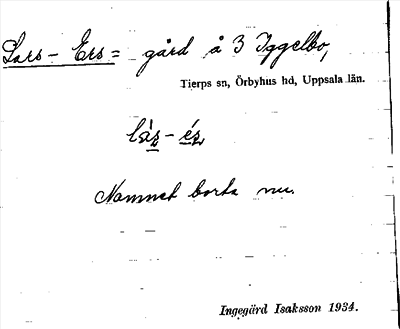 Lars-Ers= gård å 3 Iggelbo,
Tierps sn, Örbyhus hd, Uppsala län.
Namnet borta nu.
Ingegärd Isaksson 1934.